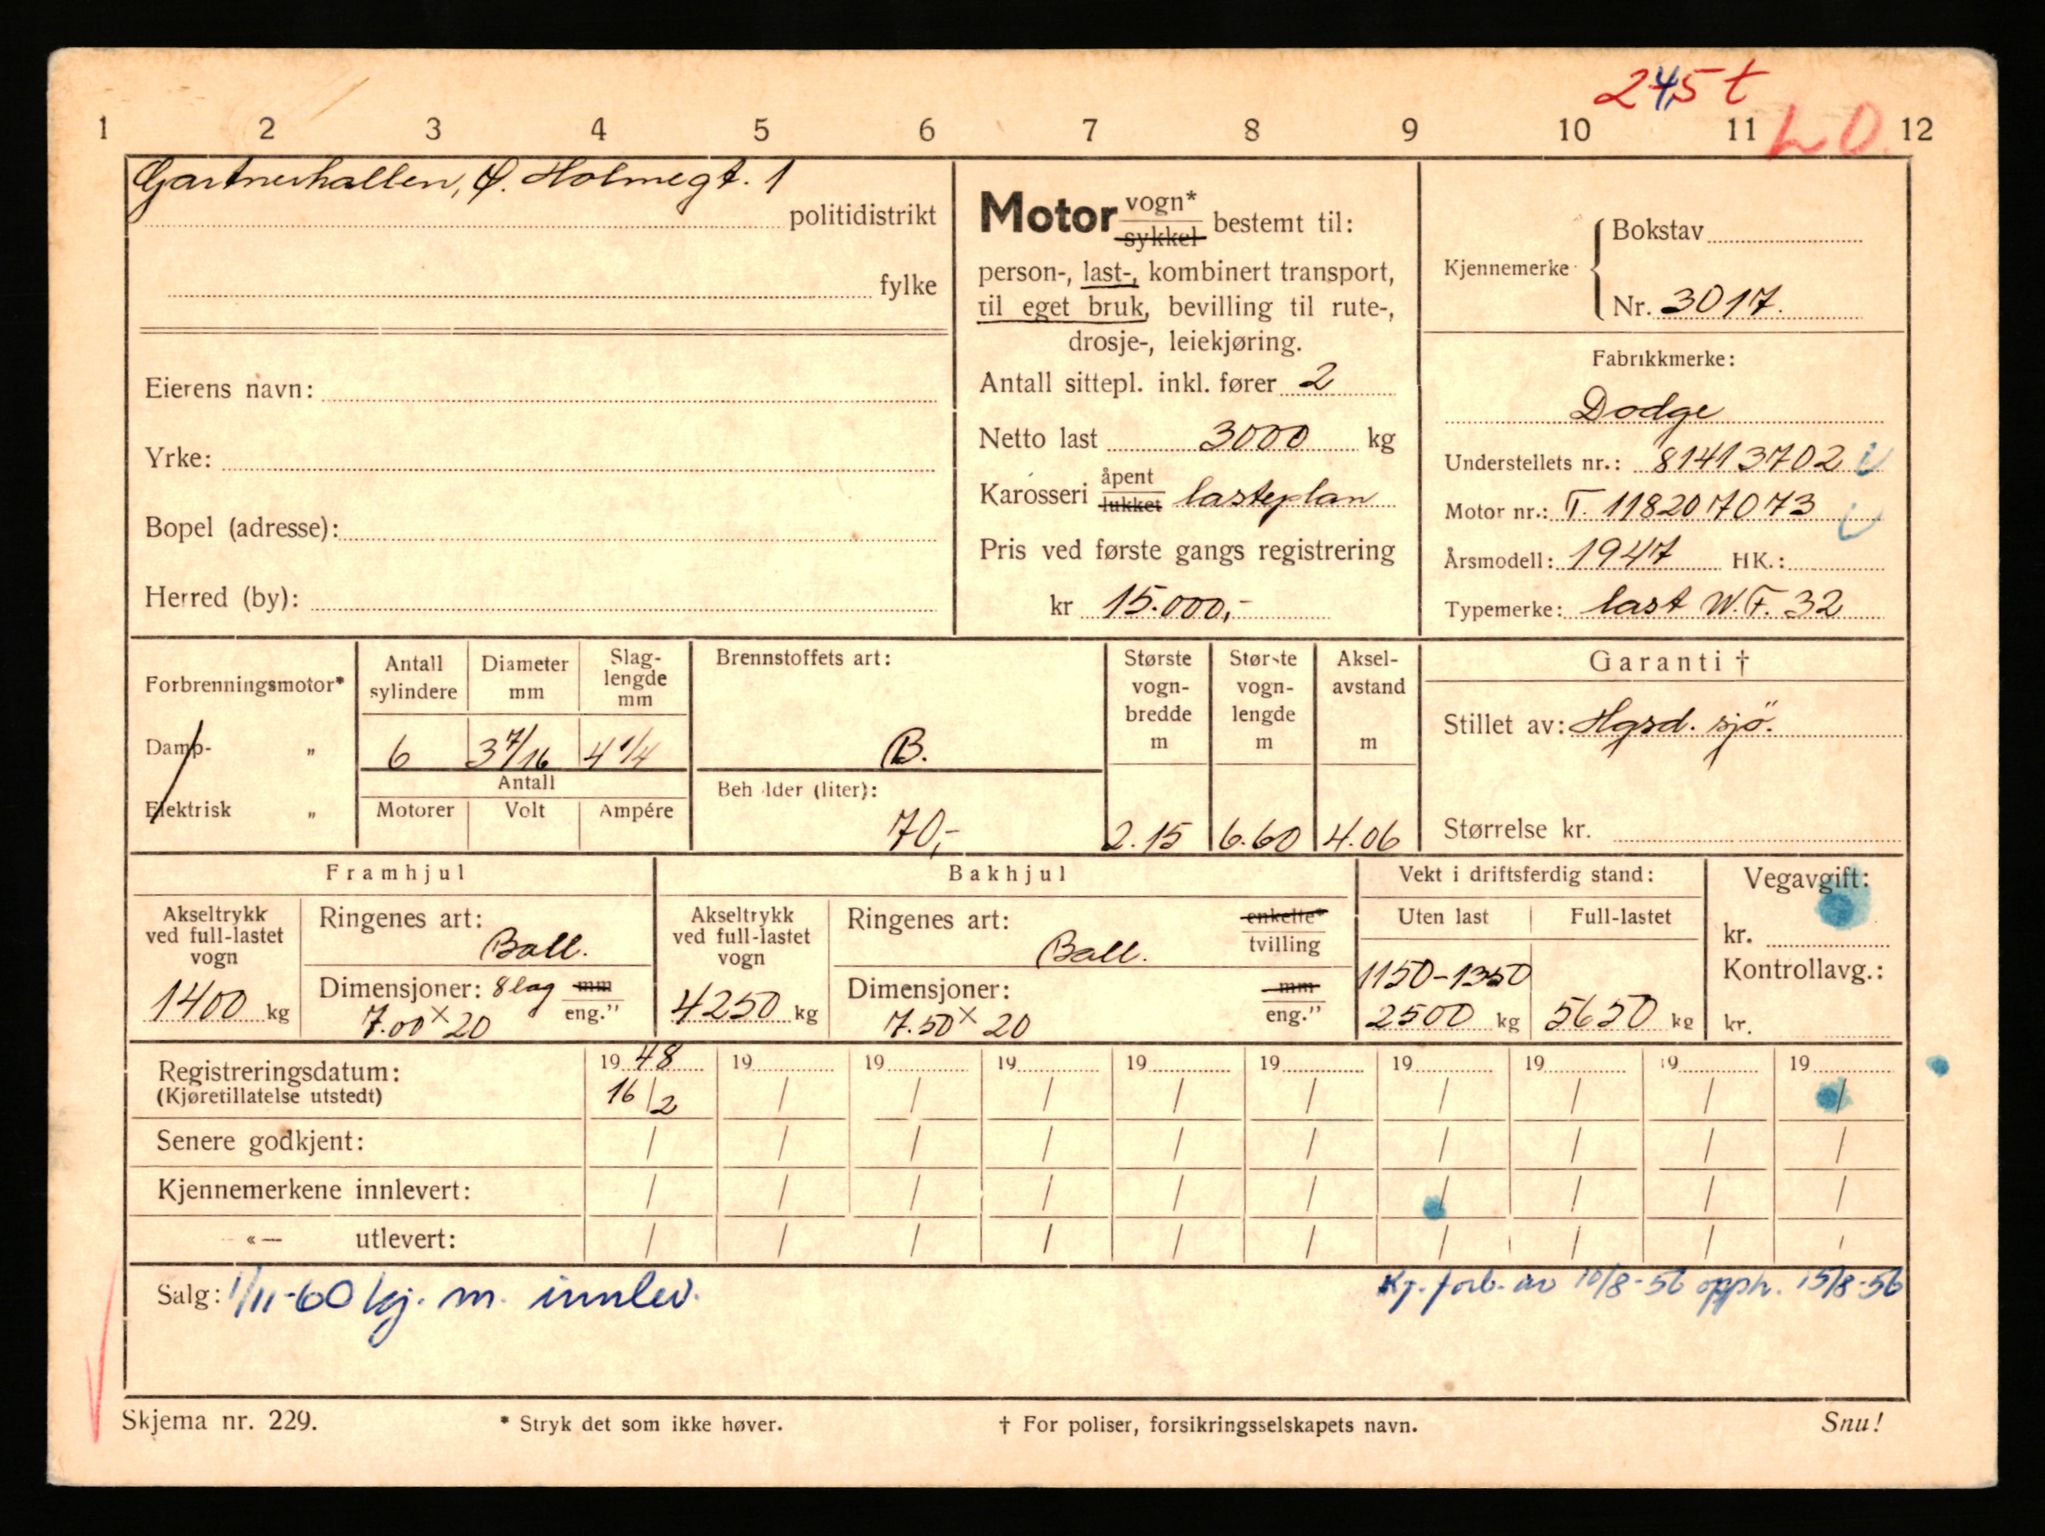 245 t
1 2 3 4 5 6 7 8 9 10 11 12
L O.
Gartnerhallen, Ø. Holmegt. 1
politidistrikt
fylke
Eierens navn:
Yrke:
Bopel (adresse):
Herred (by):
Motor vogn* sykkel bestemt til:
person-, last-, kombinert transport,
til eget bruk, bevilling til rute-,
drosje-, leiekjøring.
Antall sittepl. inkl. fører 2
Netto last 3000 kg
Karosseri åpent lukket lasteplan
Pris ved første gangs registrering
kr 15.000,-
Kjennemerke
Bokstav
Nr. 3017.
Fabrikkmerke:
Dodge
Understellets nr.: 81413702
Motor nr.: T. 118207073
Årsmodell: 1947 HK.:
Typemerke: last W.F. 32
Forbrenningsmotor*
Damp- „
Elektrisk „
Antall sylindere
Diameter mm
Slag-lengde mm
6 3 7/16 4 1/4
Antall
Motorer Volt Ampére
Brennstoffets art:
B.
Beh lder (liter):
70,-
Største vogn-bredde m
2.15
Største vogn-lengde m
6.60
Aksel-avstand m
4.06
Garanti †
Stillet av: Hgsd. sjö.
Størrelse kr.
Framhjul
Akseltrykk ved full-lastet vogn
1400 kg
Ringenes art:
Ball.
Dimensjoner: 8 lag mm eng."
7.00 x 20
Bakhjul
Akseltrykk ved full-lastet vogn
4250 kg
Ringenes art: enkelte* tvilling
Ball.
Dimensjoner: mm eng."
7.50 x 20
Vekt i driftsferdig stand:
Uten last Full-lastet
1150-1350
2500 kg 5650 kg
Vegavgift:
kr.
Kontrollavg.:
kr.
Registreringsdatum: 19 48 19 19 19 19 19 19 19 19 19
(Kjøretillatelse utstedt) 16/2 / / / / / / / / /
Senere godkjent: / / / / / / / / / /
Kjennemerkene innlevert: / / / / / / / / / /
«— utlevert: / / / / / / / / / /
Salg: 1/11-60 kj. m. innlev.
Kj. forb. av 10/8-56 opph. 15/8-56
Skjema nr. 229.
* Stryk det som ikke høver.
† For poliser, forsikringsselskapets navn.
Snu!